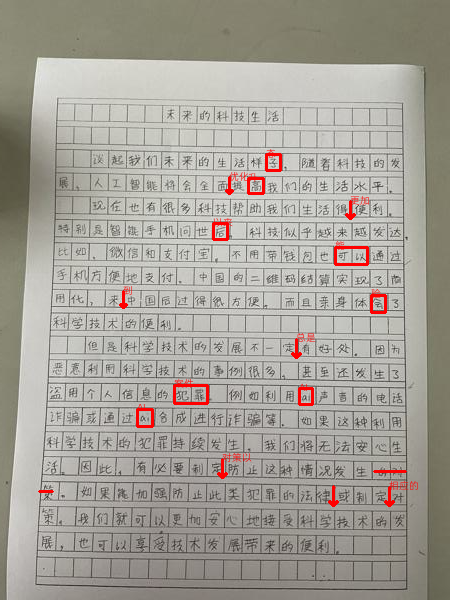 未来的科技生活
态
谈起我们未来的生活样子，随着科技的发
优化
展，人工智能将会全面提高我们的生活水平。
更加
现在也有很多科技帮助我们生活得便利。
以来
特别是智能手机问世后，科技似乎越来越发达。
能
比如，微信和支付宝。不用带钱月也可以通过
手机方便地支付。中国的二维码结算实现了商
到 验
用化，来中国后过得很方便。而且亲身体会了
科学技术的便利。
总是
但是科学技术的发展不一定有好处。因为
恶意利用科学技术的事例很多。甚至还发生了
案件 AI
盗用个人信息的犯罪。例如利用ai声音的电话
AI
诈骗或通过ai合成进行诈骗等。如果这种利用
科学技术的犯罪持续发生，我们将无法安心生
对策以
活。因此，有必要制定防止这种情况发生的对
相应的
策。如果能加强防止此类犯罪的法律或制定对
策，我们就可以更加安心地接受科学技术的发
展，也可以享受技术发展带来的便利。